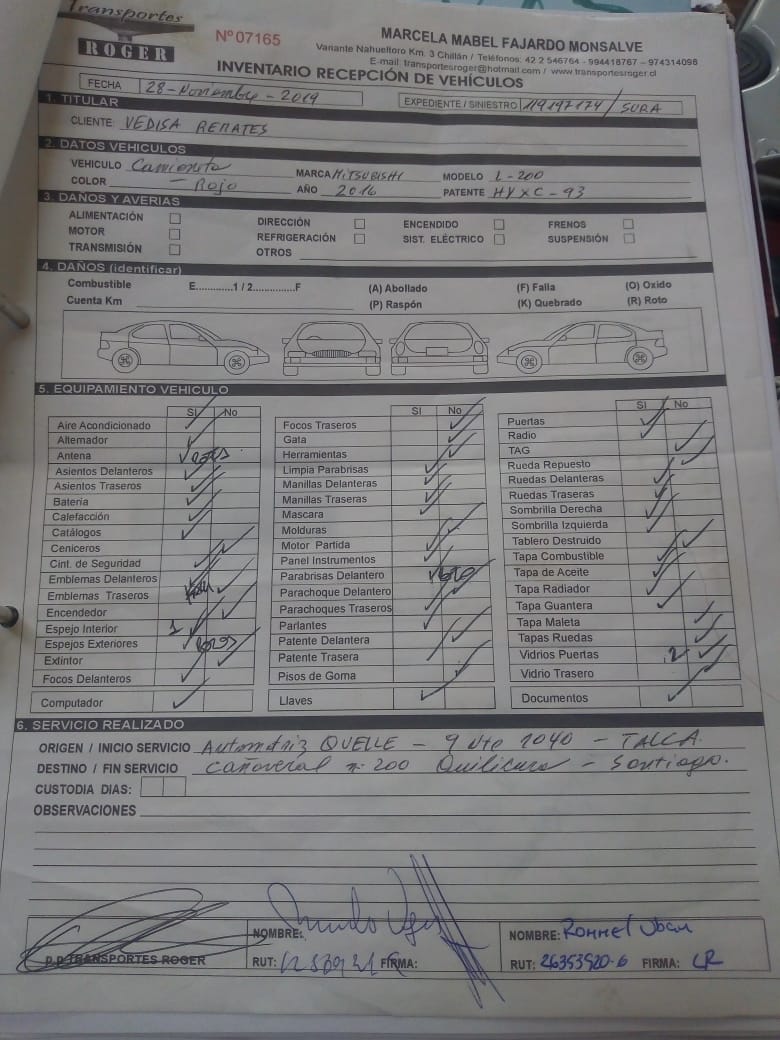 Transportes
ROGER
Nº 07165
MARCELA MABEL FAJARDO MONSALVE
Variante Nahueltoro Km. 3 Chillán / Teléfonos: 42 2 546764 - 994418767 – 974314098
E-mail: transportesroger@hotmail.com / www.transportesroger.cl
INVENTARIO RECEPCIÓN DE VEHÍCULOS
FECHA 28-Noviembre-2019
EXPEDIENTE / SINIESTRO 119197174 / SURA
1. TITULAR
CLIENTE: VEDISA REMATES
2. DATOS VEHICULOS
VEHICULO Camioneta MARCA MITSUBISHI MODELO L-200
COLOR - Rojo AÑO 2016 PATENTE HYXC-93
3. DAÑOS Y AVERIAS
ALIMENTACIÓN DIRECCIÓN ENCENDIDO FRENOS
MOTOR REFRIGERACIÓN SIST. ELÉCTRICO SUSPENSIÓN
TRANSMISIÓN OTROS
4. DAÑOS (identificar)
Combustible E............1 / 2.............F (A) Abollado (F) Falla (O) Oxido
Cuenta Km (P) Raspón (K) Quebrado (R) Roto
5. EQUIPAMIENTO VEHICULO
SI No SI No SI No
Aire Acondicionado Focos Traseros Puertas
Alternador Gata Radio
Antena Herramientas TAG
Asientos Delanteros Limpia Parabrisas Rueda Repuesto
Asientos Traseros Manillas Delanteras Ruedas Delanteras
Bateria Manillas Traseras Ruedas Traseras
Calefacción Mascara Sombrilla Derecha
Catálogos Molduras Sombrilla Izquierda
Ceniceros Motor Partida Tablero Destruido
Cint. de Seguridad Panel Instrumentos Tapa Combustible
Emblemas Delanteros Parabrisas Delantero Tapa de Aceite
Emblemas Traseros Parachoque Delantero Tapa Radiador
Encendedor Parachoques Traseros Tapa Guantera
Espejo Interior 1 Parlantes Tapa Maleta
Espejos Exteriores Patente Delantera Tapas Ruedas
Extintor Patente Trasera Vidrios Puertas 2
Focos Delanteros Pisos de Goma Vidrio Trasero
Computador Llaves Documentos
6. SERVICIO REALIZADO
ORIGEN / INICIO SERVICIO Automotriz QUELLE - 9 Nte 1040 - TALCA
DESTINO / FIN SERVICIO Cañaveral nº 200 Quilicura - Santiago.
CUSTODIA DIAS:
OBSERVACIONES
P.P TRANSPORTES ROGER
NOMBRE:
RUT: FIRMA:
NOMBRE: Rommel
RUT: 26353920-6 FIRMA: